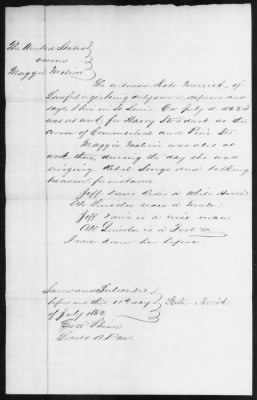 The United States
versus
Maggie
The witness Kate Merrick, of
lawful age being duly sworn, deposes and
says I live in St Louis On July 10 1863 I
was at work for Harry Stoddart at the
corner of Commercial and Pine Sts.
Maggie was also at
work there, during the day she was
singing Rebel Songs and talking
treason for instance
Jeff Davis Rides a White Horse
Abe Lincoln rides a Mule.
Jeff Davis is a wise man
Abe Lincoln is a Fool &c
I never knew her before.
Sworn and Subscribed
before me this 11th day
of July 1863
Kate Merrick